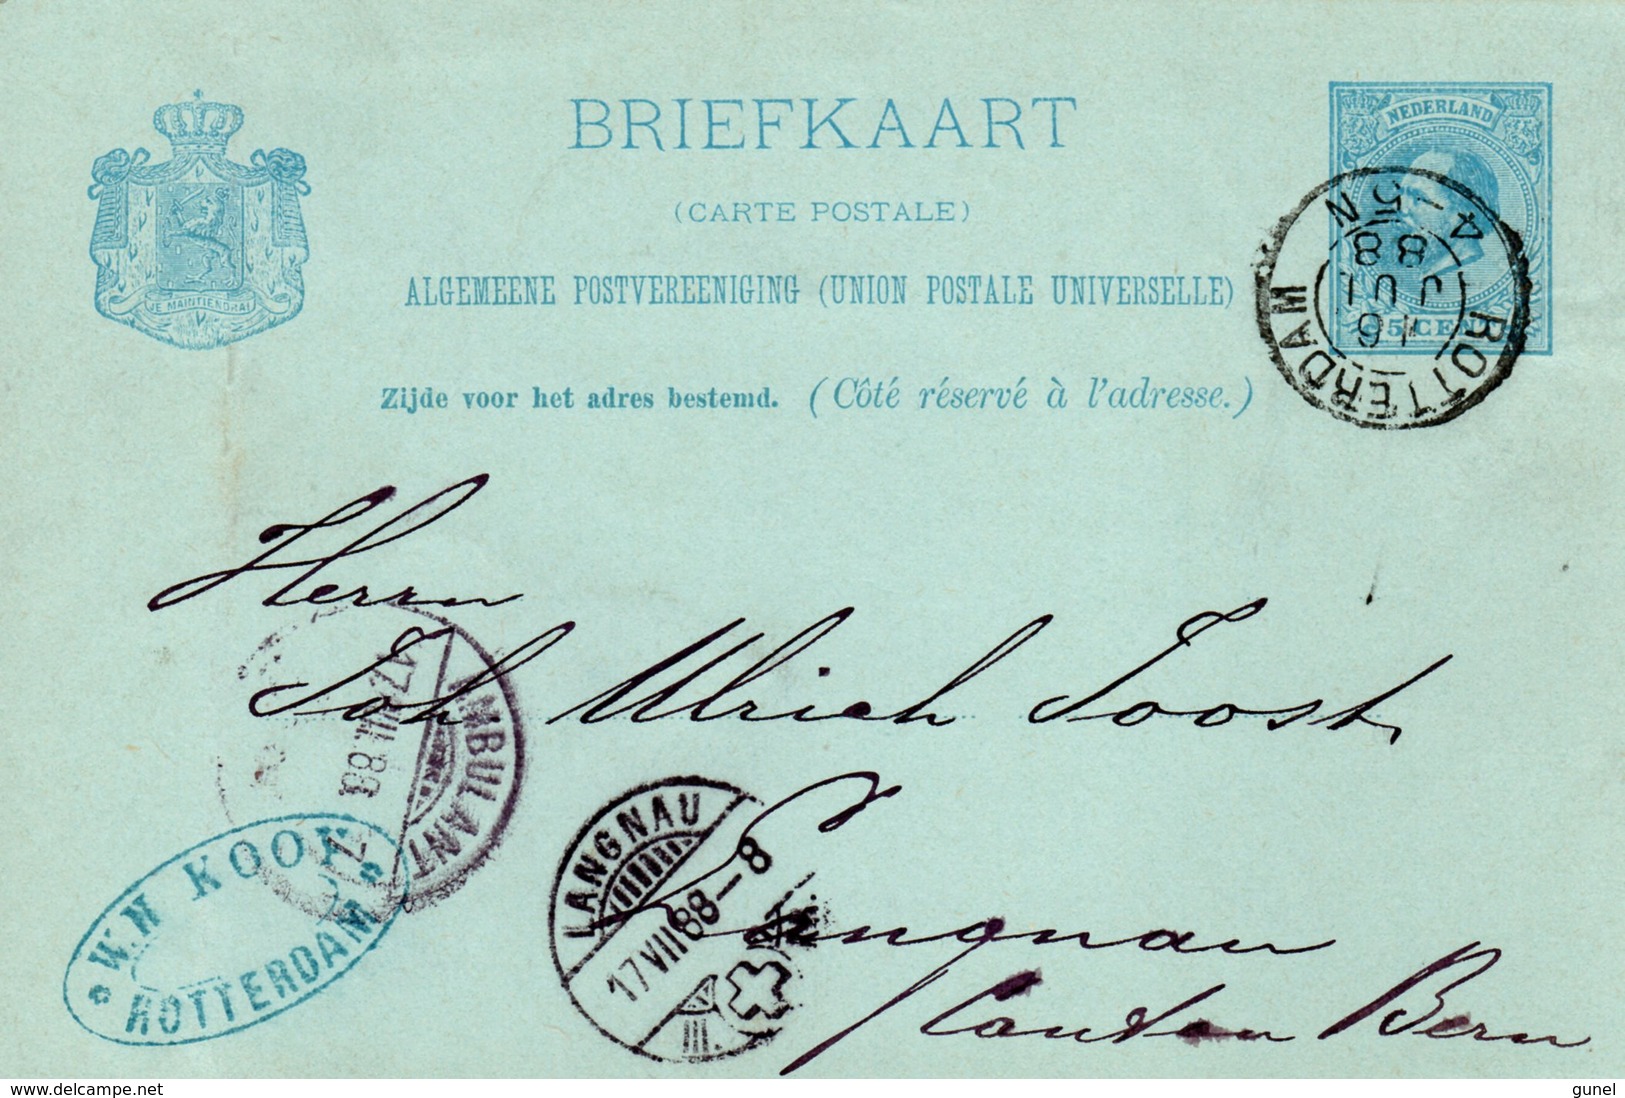 BRIEFKAART
(CARTE POSTALE)
ALGEMEENE POSTVEREENIGING (UNION POSTALE UNIVERSELLE)
Zijde voor het adres bestemd. (Côté réservé à l'adresse.)
JE MAINTIENDRAI
NEDERLAND
5 CENT
ROTTERDAM
16 JUL 88
4-5 N
Herrn
Joh Ulrich Joost
Langnau
Canton Bern
AMBULANT
17.VII.88
LANGNAU
17 VII 88-8
III.
W.H KOOY
ROTTERDAM
delcampe.net
gunel